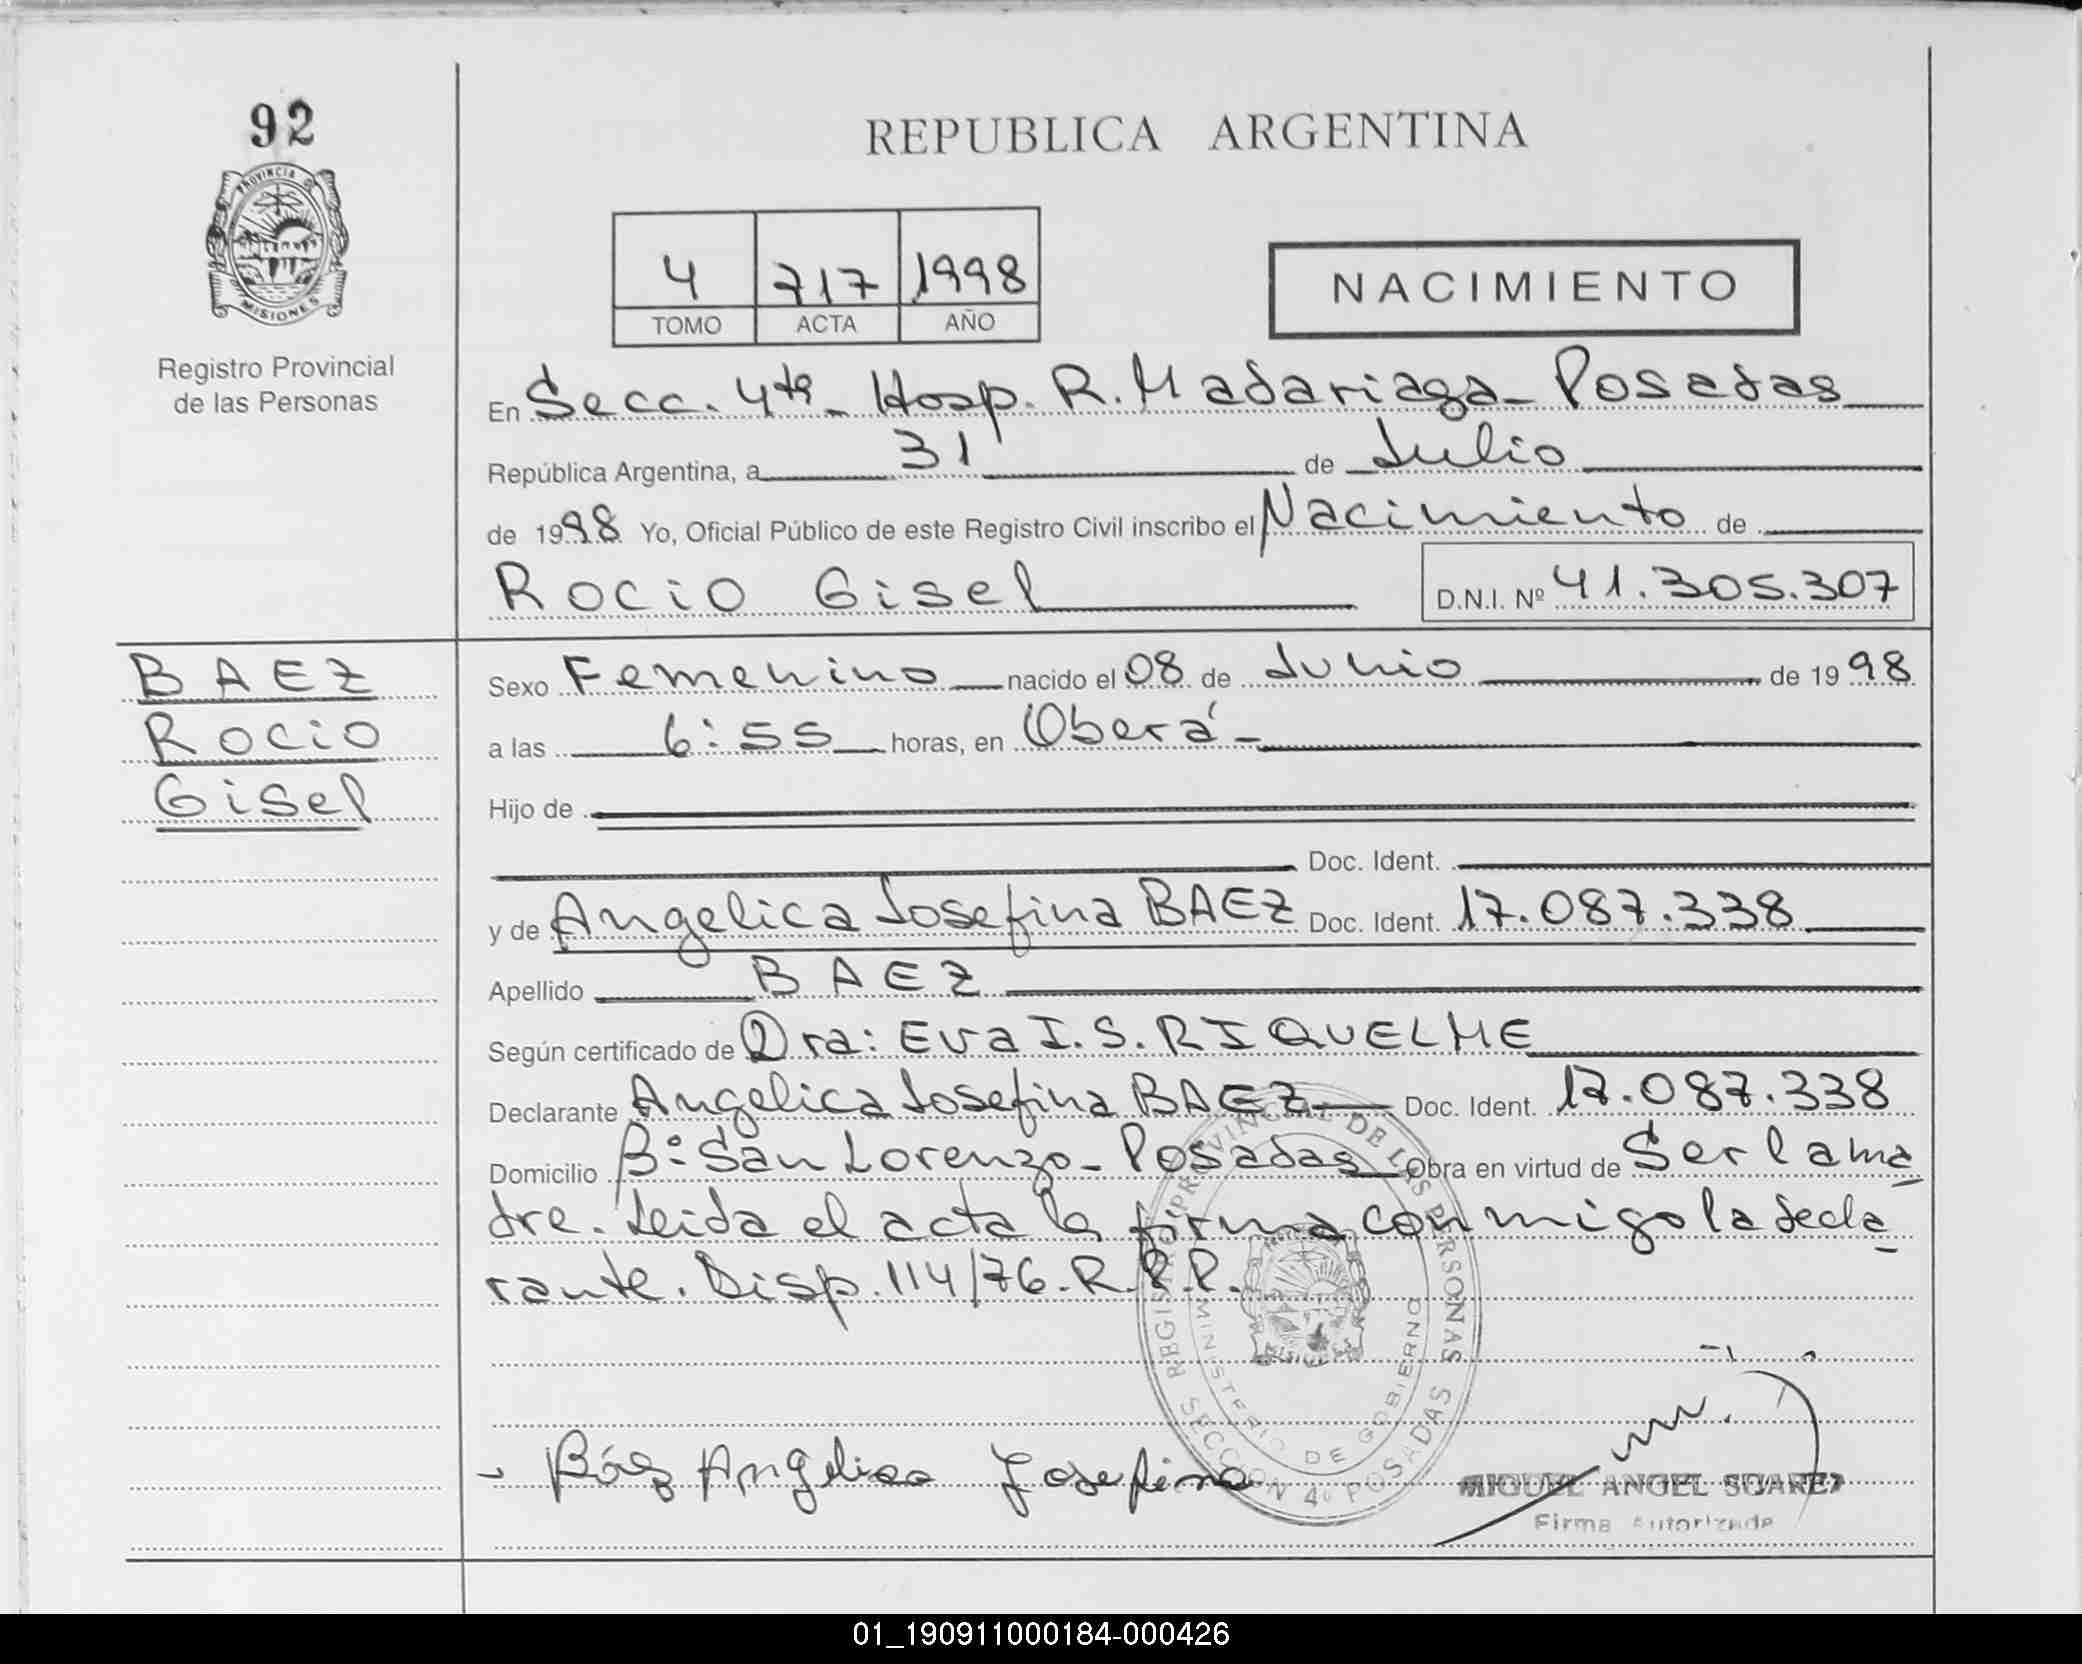 92
PROVINCIA DE
MISIONES
Registro Provincial
de las Personas
REPUBLICA ARGENTINA
4 717 1998
TOMO ACTA AÑO
NACIMIENTO
En Secc. 4ta - Hosp. R. Madariaga - Posadas
República Argentina, a 31 de Julio
de 1998 Yo, Oficial Público de este Registro Civil inscribo el Nacimiento de
Rocio Gisel D.N.I. Nº 41.305.307
BAEZ
Rocio
Gisel
Sexo Femenino nacido el 08 de Junio de 1998
a las 6:55 horas, en Oberá -
Hijo de
Doc. Ident.
y de Angelica Josefina BAEZ Doc. Ident. 17.087.338
Apellido BAEZ
Según certificado de Dra: Eva I. S. RIQUELME
Declarante Angelica Josefina BAEZ Doc. Ident. 17.087.338
Domicilio Bº San Lorenzo - Posadas Obra en virtud de Ser la ma
dre. Leida el acta la firma conmigo la decla
rante. Disp. 114/76. R.P.P.
REGISTRO PROVINCIAL DE LAS PERSONAS
MINISTERIO DE GOBIERNO
SECCION 4º POSADAS
- Báez Angelica Josefina
MIGUEL ANGEL SUAREZ
Firma Autorizada
01_190911000184-000426